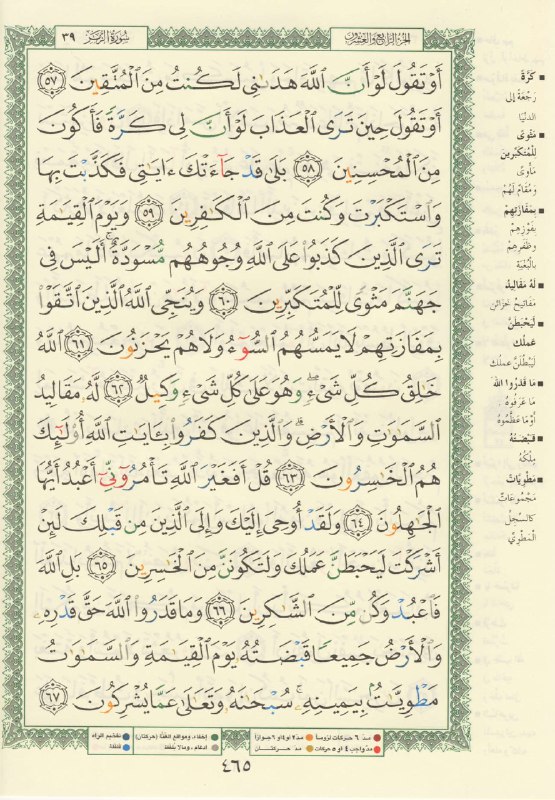 الجزء الرابع والعشرون
سُورَةُ الزُّمَر ٣٩
أَوْ تَقُولَ لَوْ أَنَّ ٱللَّهَ هَدَىٰنِى لَكُنتُ مِنَ ٱلْمُتَّقِينَ ٥٧
أَوْ تَقُولَ حِينَ تَرَى ٱلْعَذَابَ لَوْ أَنَّ لِى كَرَّةً فَأَكُونَ
مِنَ ٱلْمُحْسِنِينَ ٥٨ بَلَىٰ قَدْ جَآءَتْكَ ءَايَٰتِى فَكَذَّبْتَ بِهَا
وَٱسْتَكْبَرْتَ وَكُنتَ مِنَ ٱلْكَٰفِرِينَ ٥٩ وَيَوْمَ ٱلْقِيَٰمَةِ
تَرَى ٱلَّذِينَ كَذَبُوا۟ عَلَى ٱللَّهِ وُجُوهُهُم مُّسْوَدَّةٌ ۚ أَلَيْسَ فِى
جَهَنَّمَ مَثْوًى لِّلْمُتَكَبِّرِينَ ٦٠ وَيُنَجِّى ٱللَّهُ ٱلَّذِينَ ٱتَّقَوْا۟
بِمَفَازَتِهِمْ لَا يَمَسُّهُمُ ٱلسُّوٓءُ وَلَا هُمْ يَحْزَنُونَ ٦١ ٱللَّهُ
خَٰلِقُ كُلِّ شَىْءٍ ۖ وَهُوَ عَلَىٰ كُلِّ شَىْءٍ وَكِيلٌ ٦٢ لَّهُۥ مَقَالِيدُ
ٱلسَّمَٰوَٰتِ وَٱلْأَرْضِ ۗ وَٱلَّذِينَ كَفَرُوا۟ بِـَٔايَٰتِ ٱللَّهِ أُو۟لَٰٓئِكَ
هُمُ ٱلْخَٰسِرُونَ ٦٣ قُلْ أَفَغَيْرَ ٱللَّهِ تَأْمُرُوٓنِّىٓ أَعْبُدُ أَيُّهَا
ٱلْجَٰهِلُونَ ٦٤ وَلَقَدْ أُوحِىَ إِلَيْكَ وَإِلَى ٱلَّذِينَ مِن قَبْلِكَ لَئِنْ
أَشْرَكْتَ لَيَحْبَطَنَّ عَمَلُكَ وَلَتَكُونَنَّ مِنَ ٱلْخَٰسِرِينَ ٦٥ بَلِ ٱللَّهَ
فَٱعْبُدْ وَكُن مِّنَ ٱلشَّٰكِرِينَ ٦٦ وَمَا قَدَرُوا۟ ٱللَّهَ حَقَّ قَدْرِهِۦ
وَٱلْأَرْضُ جَمِيعًا قَبْضَتُهُۥ يَوْمَ ٱلْقِيَٰمَةِ وَٱلسَّمَٰوَٰتُ
مَطْوِيَّٰتٌۢ بِيَمِينِهِۦ ۚ سُبْحَٰنَهُۥ وَتَعَٰلَىٰ عَمَّا يُشْرِكُونَ ٦٧
▪ كَرَّةً
رَجْعَةً إلى
الدنيَا
▪ مَثْوًى
لِلْمُتَكَبِّرِينَ
مَأوًى
وَمُقَامٌ لَهُمْ
▪ بِمَفَازَتِهِمْ
بِفَوْزِهِمْ
وظَفَرِهِمْ
بالبُغْيَة
▪ لَهُ مَقَالِيدُ
مَفاتيحُ خزائنِ
▪ لَيَحْبَطَنَّ
عَمَلُكَ
لَيَبْطُلَنَّ عملُك
▪ مَا قَدَرُوا الله
مَا عَرَفُوهُ
أوْ مَا عَظَّمُوهُ
▪ قَبْضَتُهُ
مِلْكُهُ
▪ مَطْوِيَّاتٌ
مَجْمُوعَاتٌ
كالسِّجِلِّ
المَطْوِيِّ
مدّ ٦ حركات لزوماً
مدّ ٢ او ٤ او ٦ جوازاً
مدّ واجب ٤ او ٥ حركات
مدّ حركتان
إخفاء، ومواقع الغُنَّة (حركتان)
ادغام، ومالا يُلفَظ
تفخيم الراء
قلقلة
٤٦٥